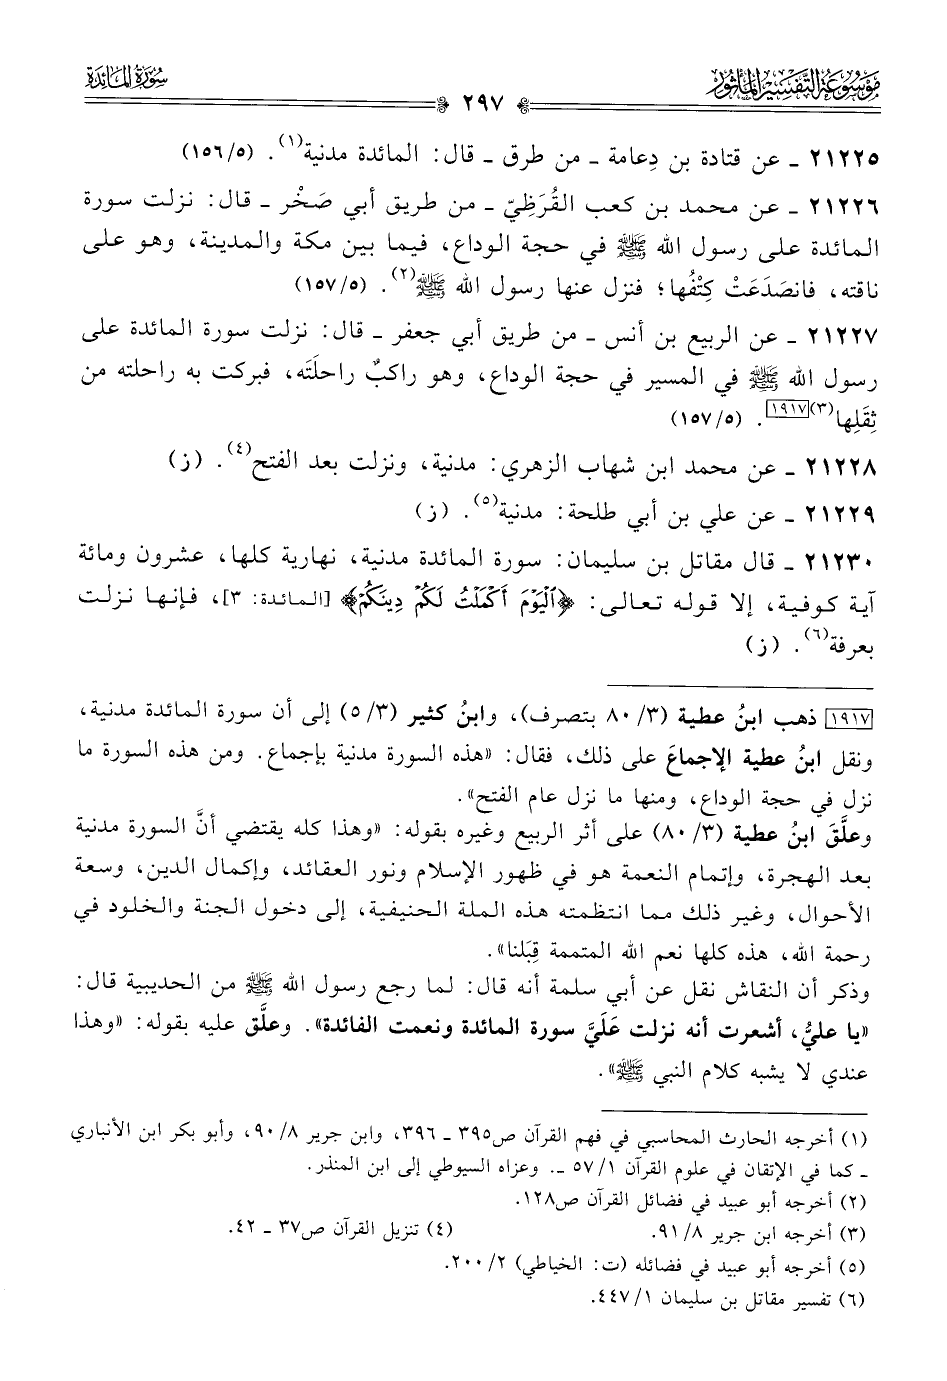 موسوعة التفسير المأثور
٢٩٧
سورة المائدة
٢١٢٢٥ ـ عن قتادة بن دِعامة ـ من طرق ـ قال: المائدة مدنية(١). (١٥٦/٥)
٢١٢٢٦ ـ عن محمد بن كعب القُرَظِيّ ـ من طريق أبي صَخْر ـ قال: نزلت سورة
المائدة على رسول الله ﷺ في حجة الوداع، فيما بين مكة والمدينة، وهو على
ناقته، فانصَدَعَتْ كِتْفُها؛ فنزل عنها رسول الله ﷺ(٢). (١٥٧/٥)
٢١٢٢٧ ـ عن الربيع بن أنس ـ من طريق أبي جعفر ـ قال: نزلت سورة المائدة على
رسول الله ﷺ في المسير في حجة الوداع، وهو راكبٌ راحلَتَه، فبركت به راحلته من
ثِقَلِها(٣)[١٩١٧]. (١٥٧/٥)
٢١٢٢٨ ـ عن محمد ابن شهاب الزهري: مدنية، ونزلت بعد الفتح(٤). (ز)
٢١٢٢٩ ـ عن علي بن أبي طلحة: مدنية(٥). (ز)
٢١٢٣٠ ـ قال مقاتل بن سليمان: سورة المائدة مدنية، نهارية كلها، عشرون ومائة
آية كوفية، إلا قوله تعالى: ﴿ٱلْيَوْمَ أَكْمَلْتُ لَكُمْ دِينَكُمْ﴾ [المائدة: ٣]، فإنها نزلت
بعرفة(٦). (ز)
[١٩١٧] ذهب ابنُ عطية (٨٠/٣ بتصرف)، وابنُ كثير (٥/٣) إلى أن سورة المائدة مدنية،
ونقل ابنُ عطية الإجماعَ على ذلك، فقال: «هذه السورة مدنية بإجماع. ومن هذه السورة ما
نزل في حجة الوداع، ومنها ما نزل عام الفتح».
وعلَّقَ ابنُ عطية (٨٠/٣) على أثر الربيع وغيره بقوله: «وهذا كله يقتضي أنَّ السورة مدنية
بعد الهجرة، وإتمام النعمة هو في ظهور الإسلام ونور العقائد، وإكمال الدين، وسعة
الأحوال، وغير ذلك مما انتظمته هذه الملة الحنيفية، إلى دخول الجنة والخلود في
رحمة الله، هذه كلها نعم الله المتممة قِبَلنا».
وذكر أن النقاش نقل عن أبي سلمة أنه قال: لما رجع رسول الله ﷺ من الحديبية قال:
«يا عليُّ، أشعرت أنه نزلت عَلَيَّ سورة المائدة ونعمت الفائدة». وعلَّق عليه بقوله: «وهذا
عندي لا يشبه كلام النبي ﷺ».
(١) أخرجه الحارث المحاسبي في فهم القرآن ص٣٩٥ ـ ٣٩٦، وابن جرير ٩٠/٨، وأبو بكر ابن الأنباري
ـ كما في الإتقان في علوم القرآن ٥٧/١ ـ. وعزاه السيوطي إلى ابن المنذر.
(٢) أخرجه أبو عبيد في فضائل القرآن ص١٢٨.
(٣) أخرجه ابن جرير ٩١/٨. (٤) تنزيل القرآن ص٣٧ ـ ٤٢.
(٥) أخرجه أبو عبيد في فضائله (ت: الخياطي) ٢٠٠/٢.
(٦) تفسير مقاتل بن سليمان ٤٤٧/١.